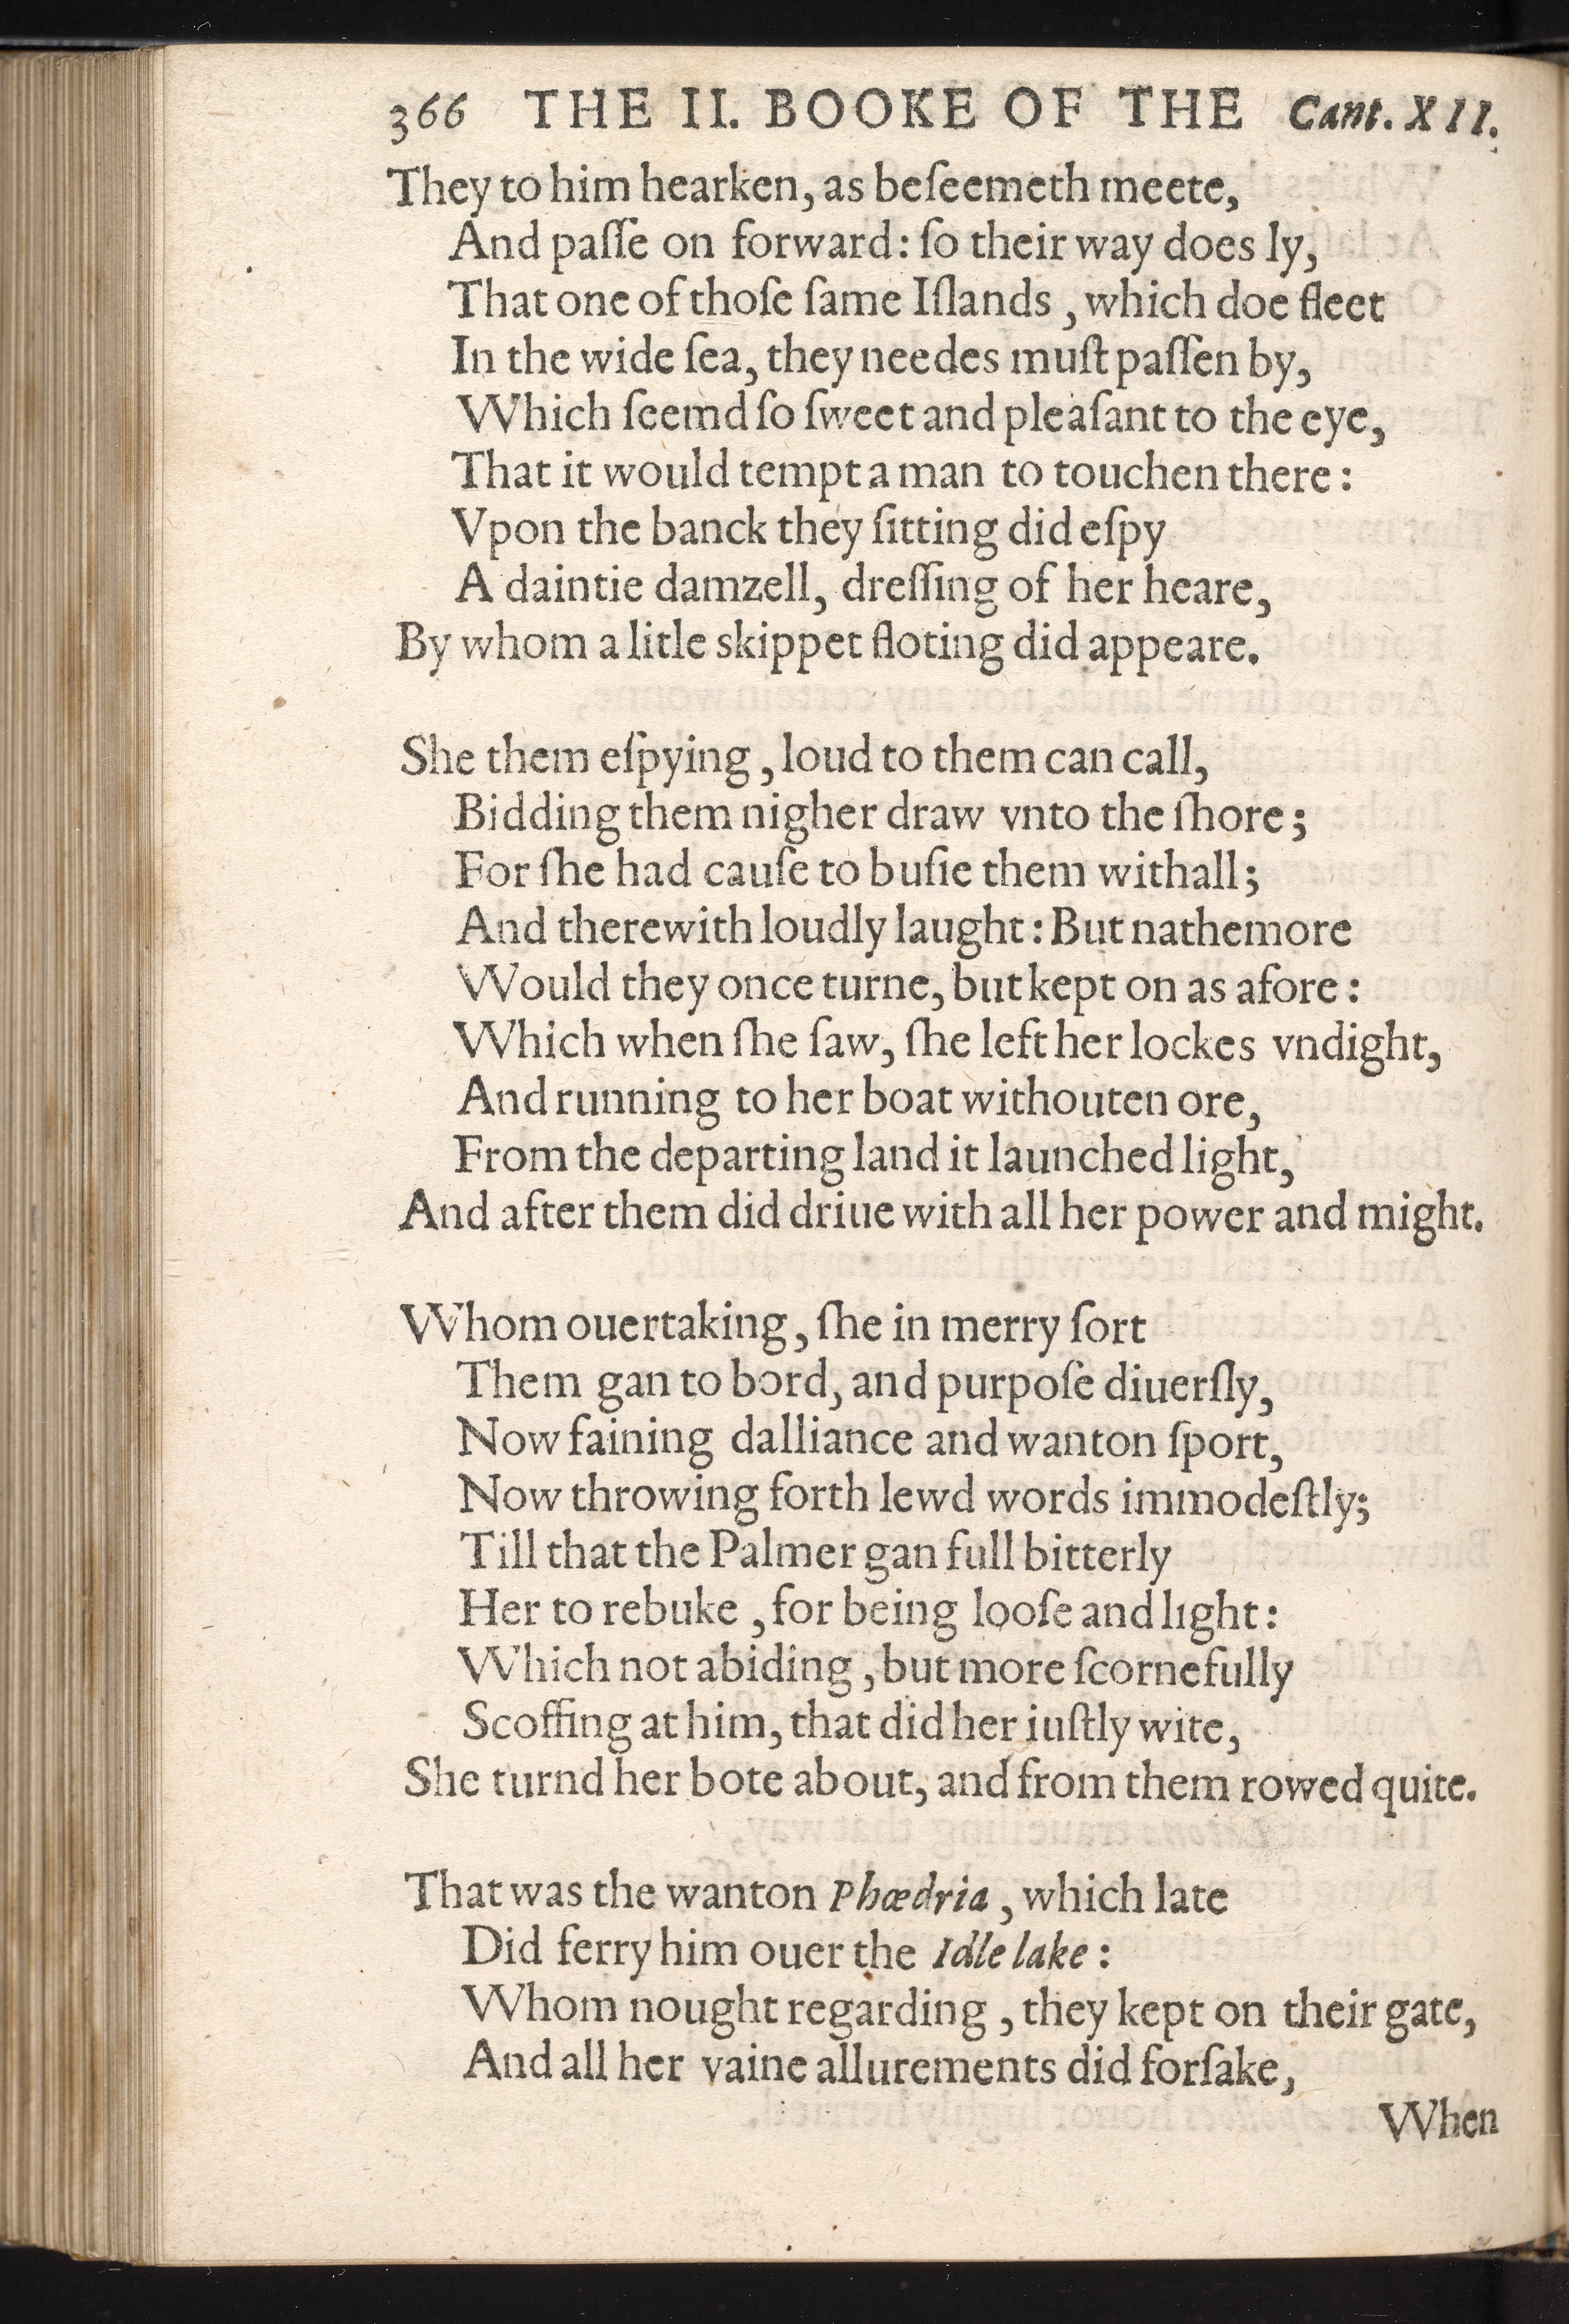 366 THE II. BOOKE OF THE Cant. XII.
They to him hearken, as beſeemeth meete,
And paſſe on forward: ſo their way does ly,
That one of thoſe ſame Iſlands, which doe fleet
In the wide ſea, they needes muſt paſſen by,
Which ſeemd ſo ſweet and pleaſant to the eye,
That it would tempt a man to touchen there:
Vpon the banck they ſitting did eſpy
A daintie damzell, dreſſing of her heare,
By whom a litle skippet floting did appeare.

She them eſpying, loud to them can call,
Bidding them nigher draw vnto the ſhore;
For ſhe had cauſe to buſie them withall;
And therewith loudly laught: But nathemore
Would they once turne, but kept on as afore:
Which when ſhe ſaw, ſhe left her lockes vndight,
And running to her boat withouten ore,
From the departing land it launched light,
And after them did driue with all her power and might.

Whom ouertaking, ſhe in merry ſort
Them gan to bord, and purpoſe diuerſly,
Now faining dalliance and wanton ſport,
Now throwing forth lewd words immodeſtly;
Till that the Palmer gan full bitterly
Her to rebuke, for being looſe and light:
Which not abiding, but more ſcornefully
Scoffing at him, that did her iuſtly wite,
She turnd her bote about, and from them rowed quite.

That was the wanton Phœdria, which late
Did ferry him ouer the Idle lake:
Whom nought regarding, they kept on their gate,
And all her vaine allurements did forſake,
When